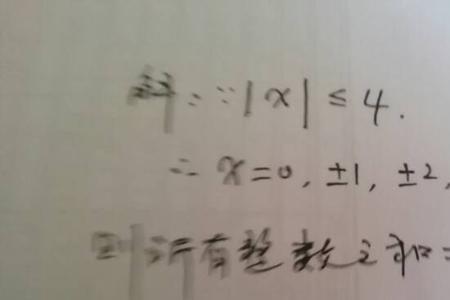 解：∵|x|≤4.
∴ x=0, ±1, ±2,
则所有整数之和=